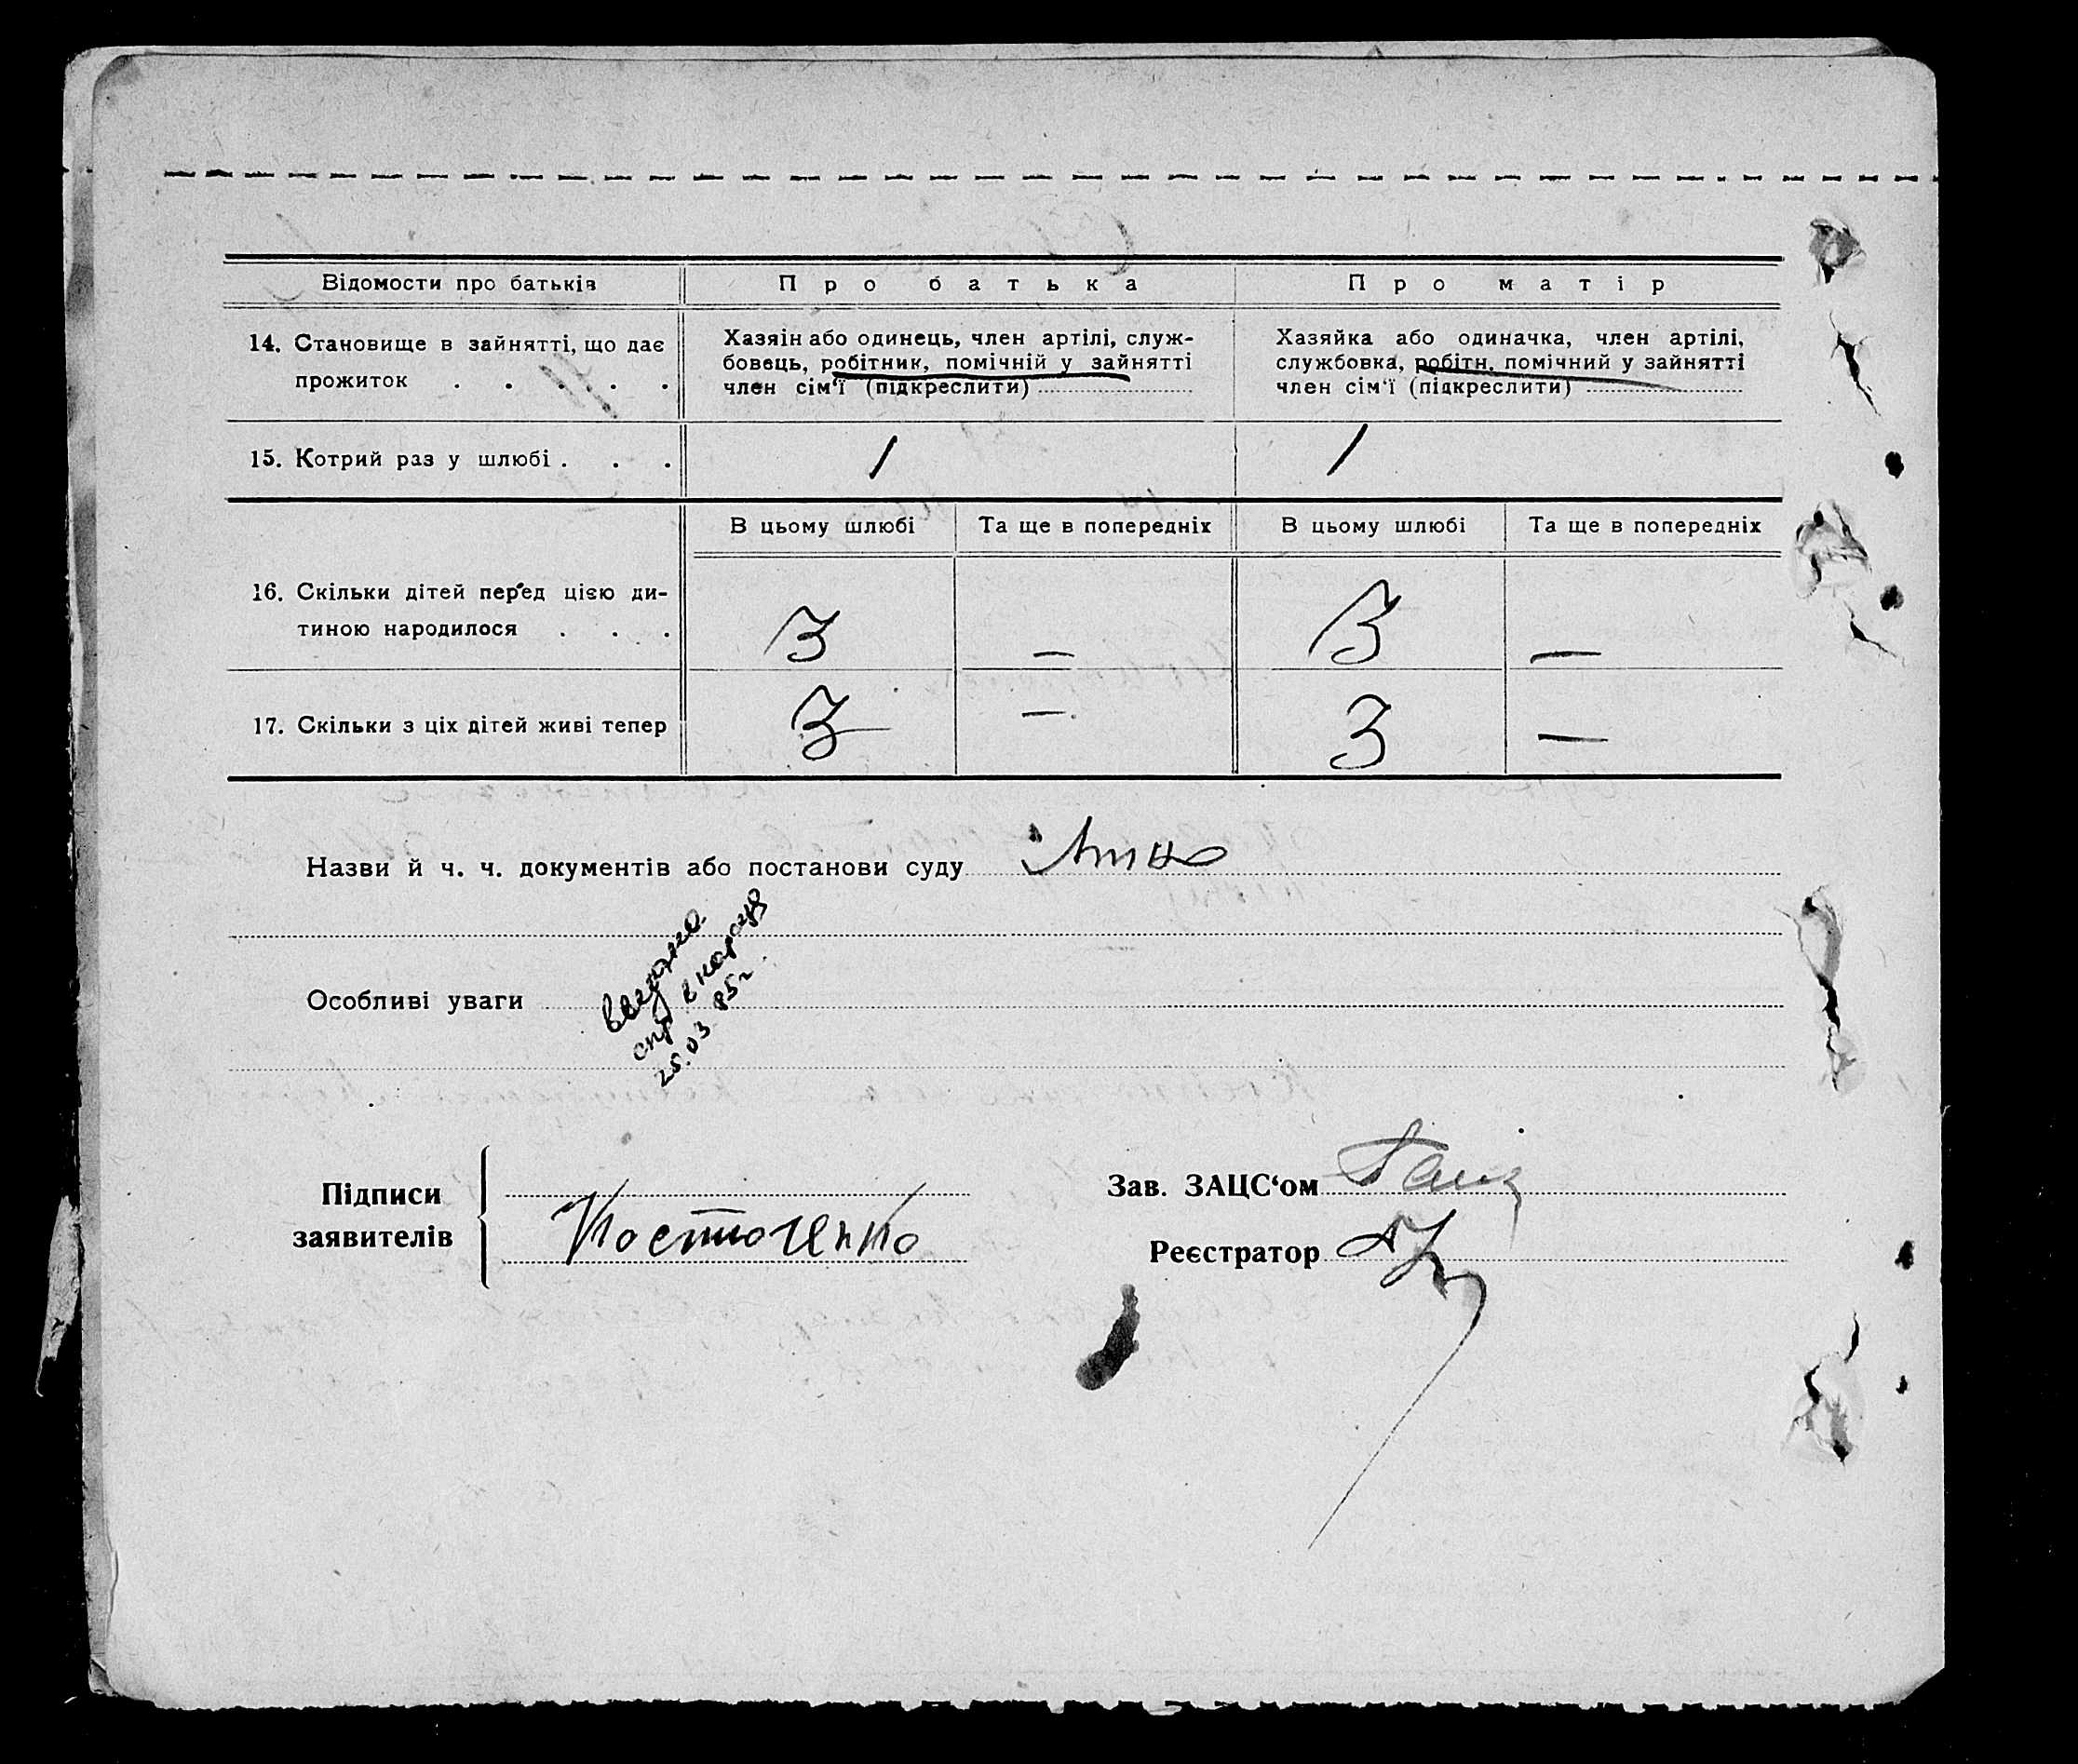 Відомости про батьків
Про батька
Про матір
14. Становище в зайнятті, що дає
прожиток . . . . .
Хазяін або одинець, член артілі, служ-
бовець, робітник, помічній у зайнятті
член сім'ї (підкреслити)
Хазяйка або одиначка, член артілі,
службовка, робітн. помічний у зайнятті
член сім'ї (підкреслити)
15. Котрий раз у шлюбі . . .
1
1
В цьому шлюбі
Та ще в попередніх
В цьому шлюбі
Та ще в попередніх
16. Скільки дітей перед цією ди-
тиною народилося . . .
3 — 3 —
17. Скільки з ціх дітей живі тепер
3 — 3 —
Назви й ч. ч. документів або постанови суду
Особливі уваги
25.03 85г.
Підписи
заявителів
Костюченко
Зав. ЗАЦС‘ом
Реєстратор